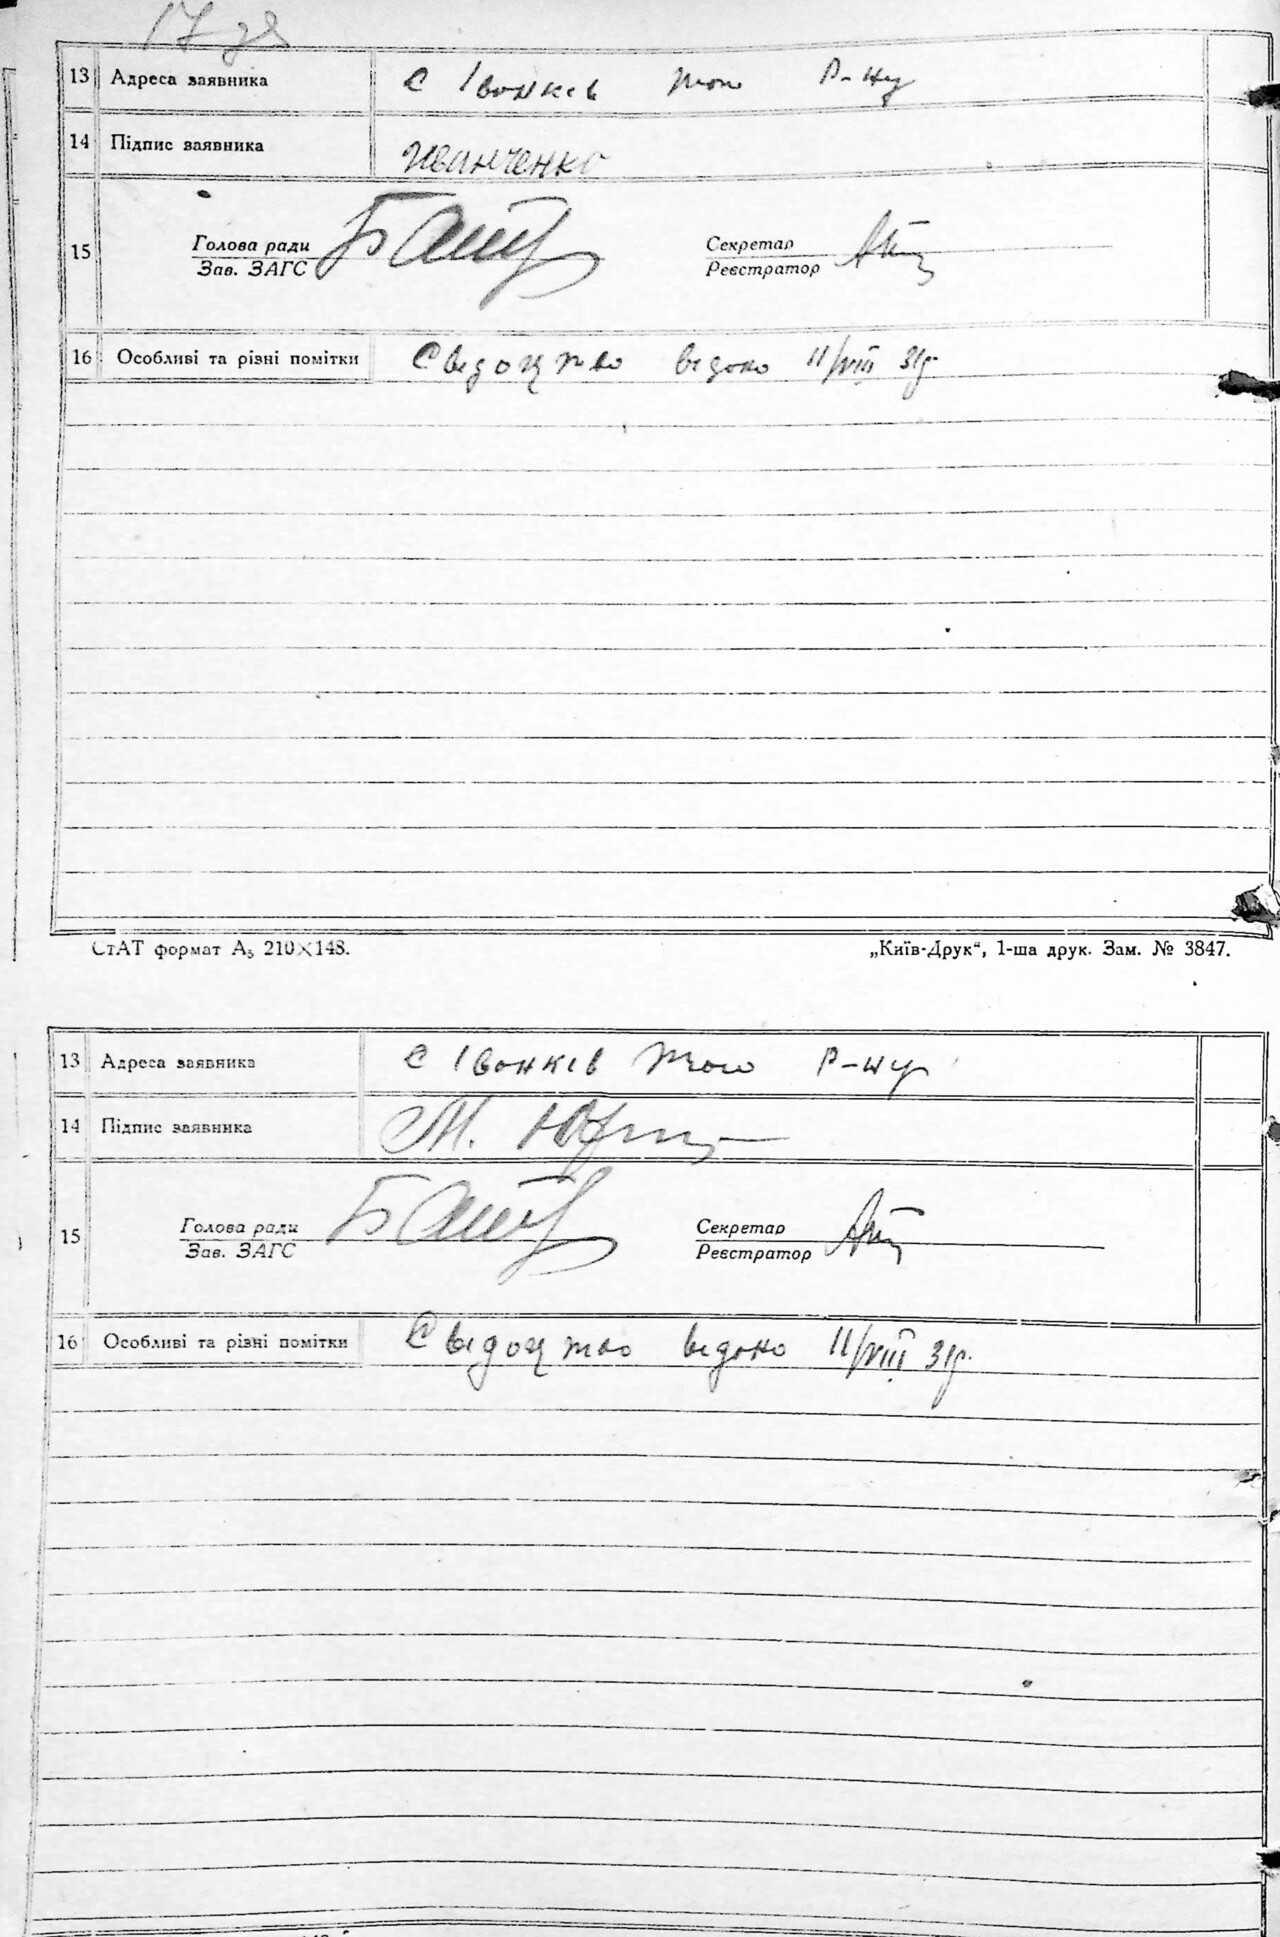 17 зв
13 Адреса заявника с Іванків того Р-ну
14 Підпис заявника Иванченко
15 Голова ради Секретар
Зав. ЗАГС Реєстратор
16 Особливі та різні помітки Свідоцтво видано 11/VIII 31р.
СтАТ формат А₅ 210×148. „Київ-Друк“, 1-ша друк. Зам. № 3847.
13 Адреса заявника с Іванків того Р-ну
14 Підпис заявника М.
15 Голова ради Секретар
Зав. ЗАГС Реєстратор
16 Особливі та різні помітки Свідоцтво видано 11/VIII 31р.